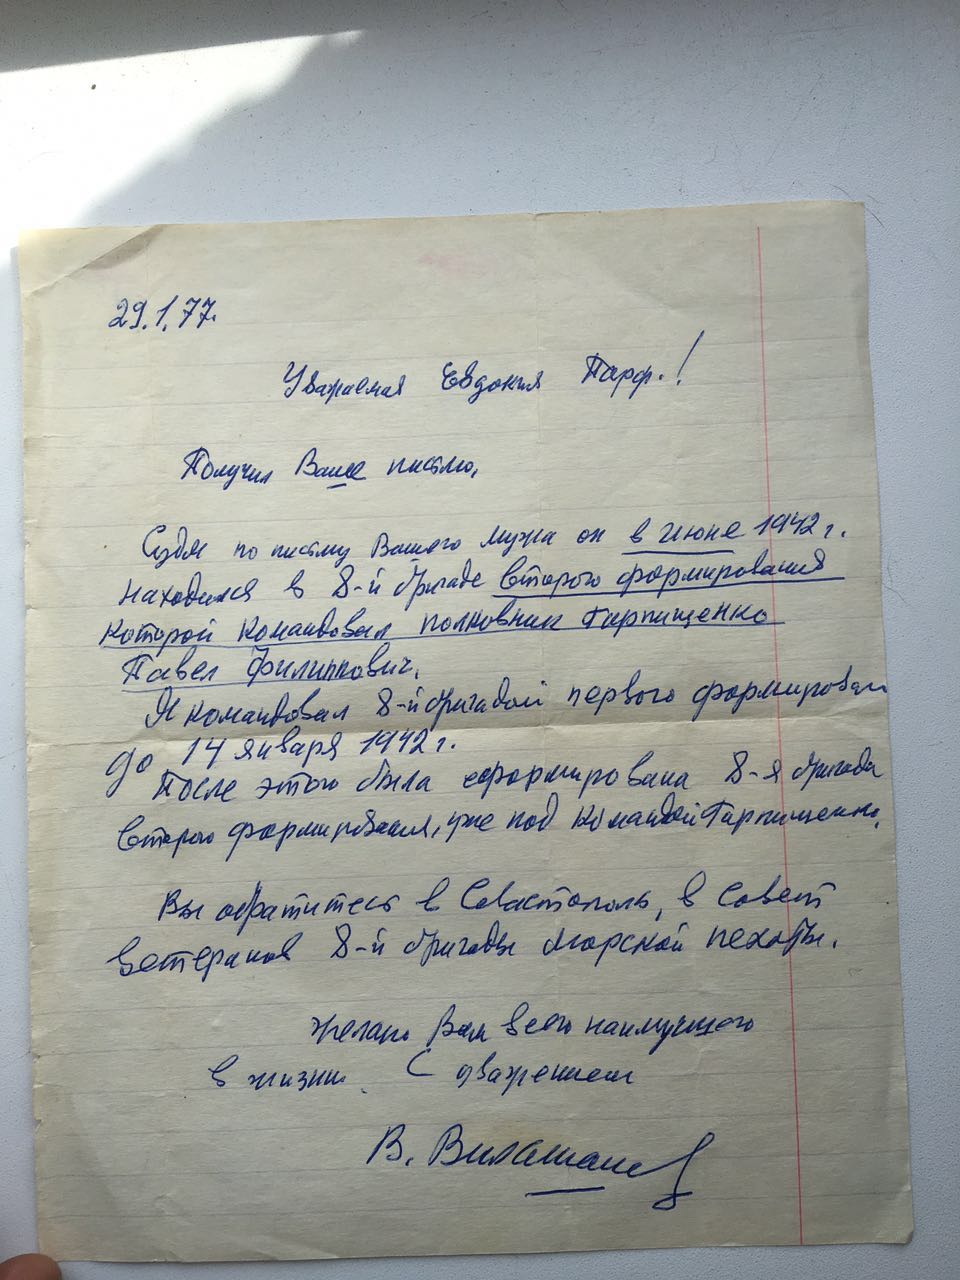 29.1.77.
Уважаемая Евдокия Парф.!
Получил Ваше письмо,
Судя по письму Вашего мужа он в июне 1942 г.
находился в 8-й бригаде второго формирования
которой командовал полковник Гарпищенко
Павел Филиппович.
Я командовал 8-й бригадой первого формирован
до 14 января 1942 г.
После этого была сформирована 8-я бригада
второго формирования, уже под командой Гарпищенко.
Вы обратитесь в Севастополь, в Совет
ветеранов 8-й бригады морской пехоты.
Желаю Вам всего наилучшего
в жизни. С уважением
В. Вильшанс